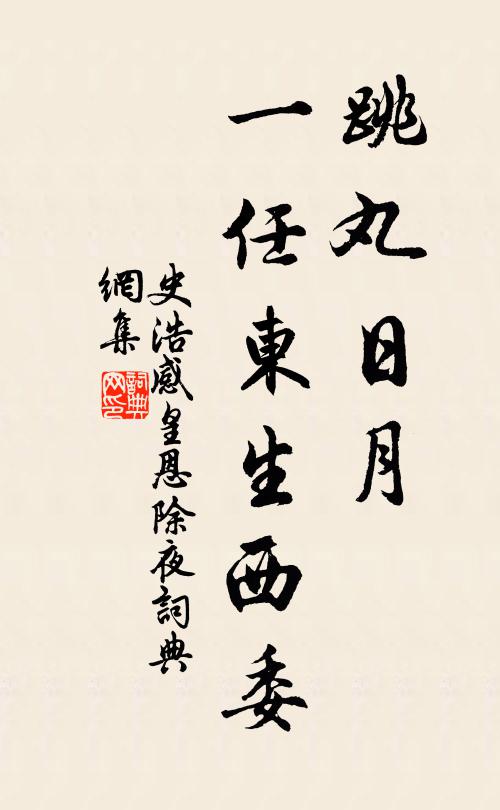 跳丸日月
一任東生西委
史浩感皇恩除夜詞典
網集
詞典
网印